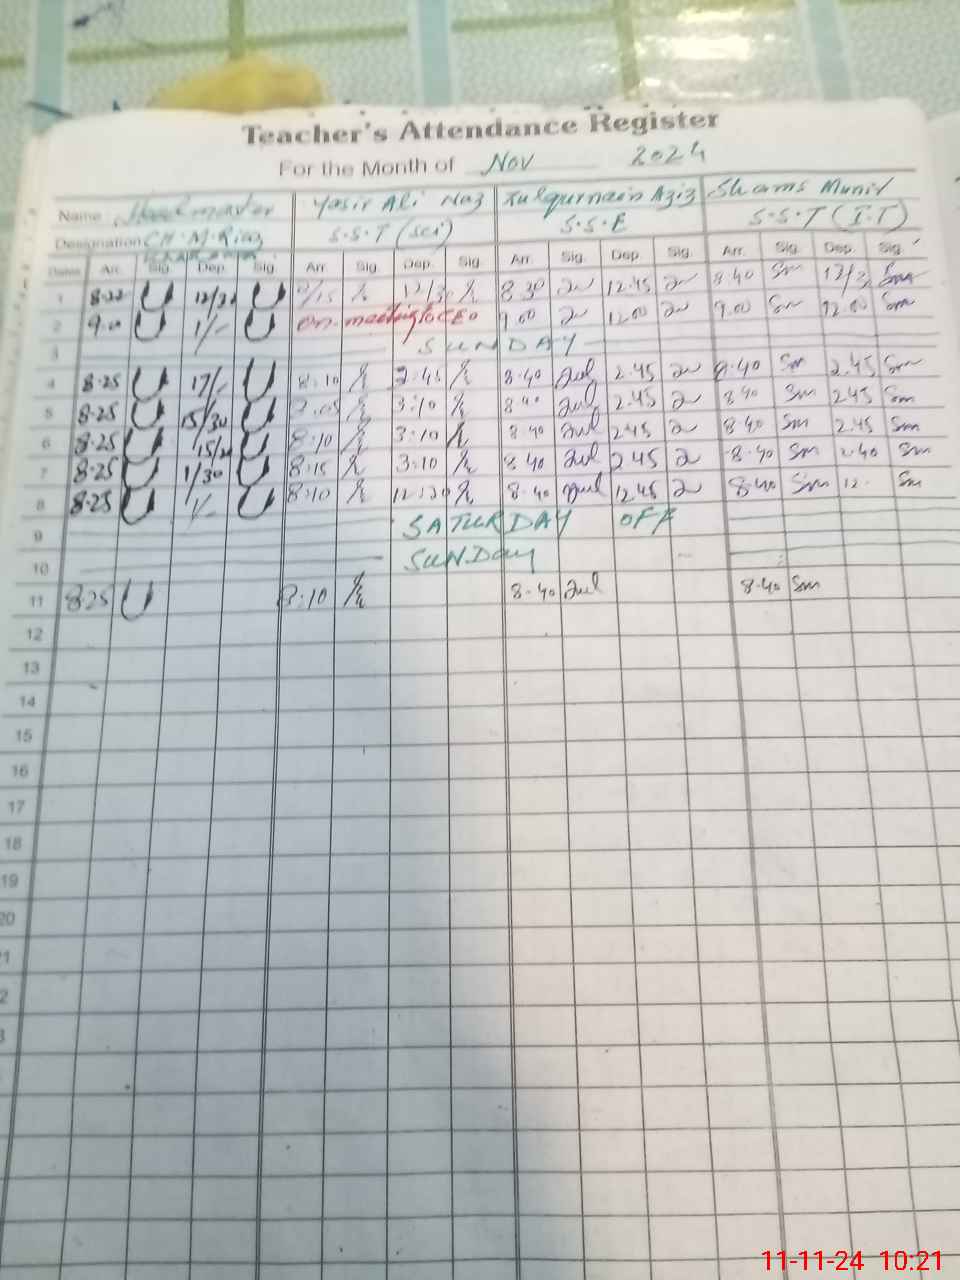 Teacher's Attendance Register
For the Month of Nov 2024
Name Headmaster Yasir Ali Naz Zulqurnain Aziz Shams Munir
Designation CH. M. Riaz S.S.T (Sci) S.S.E S.S.T (I.T)
Dates Arr. Sig. Dep. Sig. Arr. Sig. Dep. Sig. Arr. Sig. Dep. Sig. Arr. Sig. Dep. Sig.
1 12/30 8 30 12.45 8.40 Sm Sm
2 9.00 1/- on meeting to CEO 9.00 12.00 9.00 Sm 12.00 Sm
3 SUNDAY
4 8.25 8:10 2:45 8.40 2.45 8.40 Sm 2.45 Sm
5 8.25 15/30 3:10 8.40 2.45 8.40 Sm 2.45 Sm
6 8.25 8:10 3:10 8.40 2.45 8.40 Sm 2.45 Sm
7 8.25 1/30 8:15 3:10 8.40 2.45 8.40 Sm 2.40 Sm
8 8.25 1/- 8:10 8.40 12.45 8.40 Sm 12. Sm
9 SATURDAY OFF
10 SUNDay
11 8.25 8:10 8.40 8.40 Sm
12
13
14
15
16
17
18
19
20
11-11-24 10:21